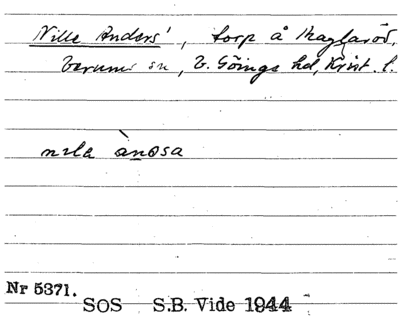 Nille Anders', torp å Maglaröd,
Verums sn, V. Göinge hd, Krist. l.
nıla ànosa
Nr 5371.
SOS S.B. Vide 1944